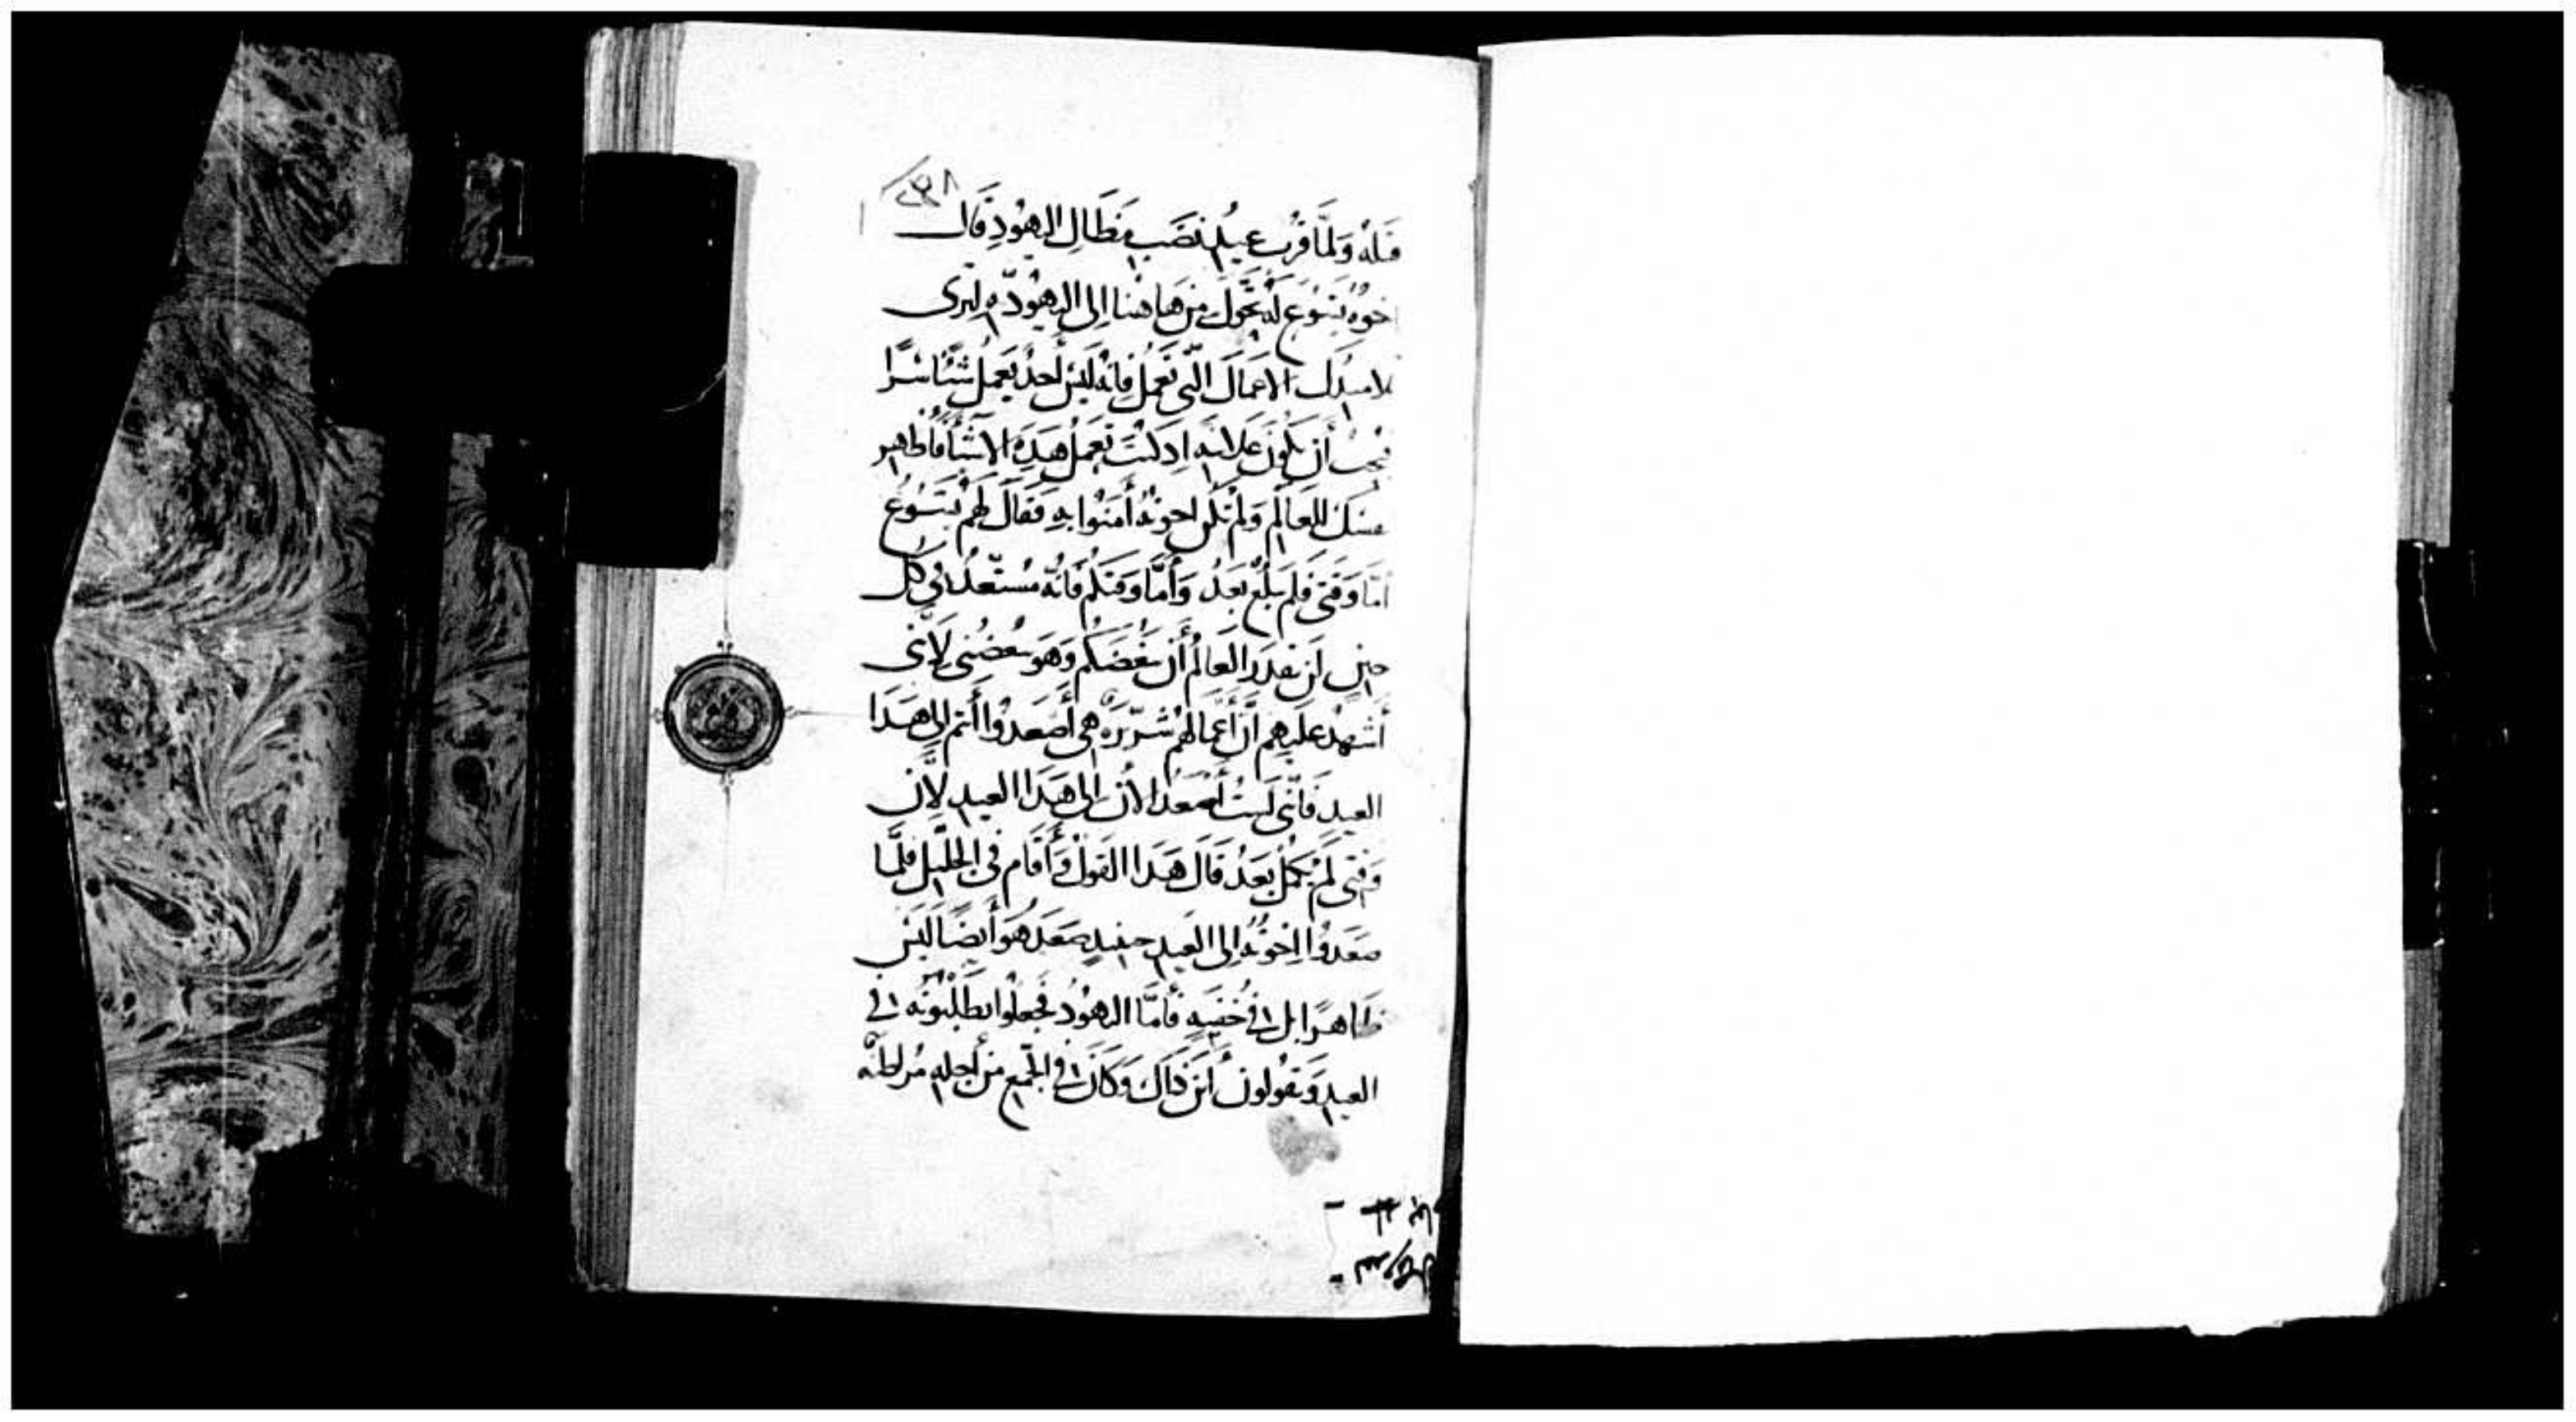 قتله ولما قرب عيد نصب مظال اليهود قال
اخوه يسوع له تحول من هاهنا الى اليهوديه ليرى
تلاميدك الاعمال التى تعمل فانه ليس احد يعمل شيئا سرا
فيحب أن يكون علانيه اد كنت تعمل هده الاشيا فاظهر
نفسك للعالم ولم تكن اخوته أمنوا به فقال لهم يسوع
أما وقتى فلم يبلغ بعد وأما وقتكم فانه مستعد فى كل
حين لن يقدر العالم أن يبغضكم وهو يبغضنى لأنى
أشهد عليهم أن أعمالهم شريره هى أصعدوا أنتم الى هدا
العيد فانى لست أصعد الأن الى هدا العيد لأن
وقتى لم يكمل بعد قال هدا القول وأقام فى الجليل فلما
صعدوا اخوته الى العيد حينيد صعد هو أيضا ليس
ظاهرا بل فى خفيه فأما اليهود فجعلوا يطلبونه فى
العيد ويقولون أين داك وكان فى الجمع من أجله مراطنه